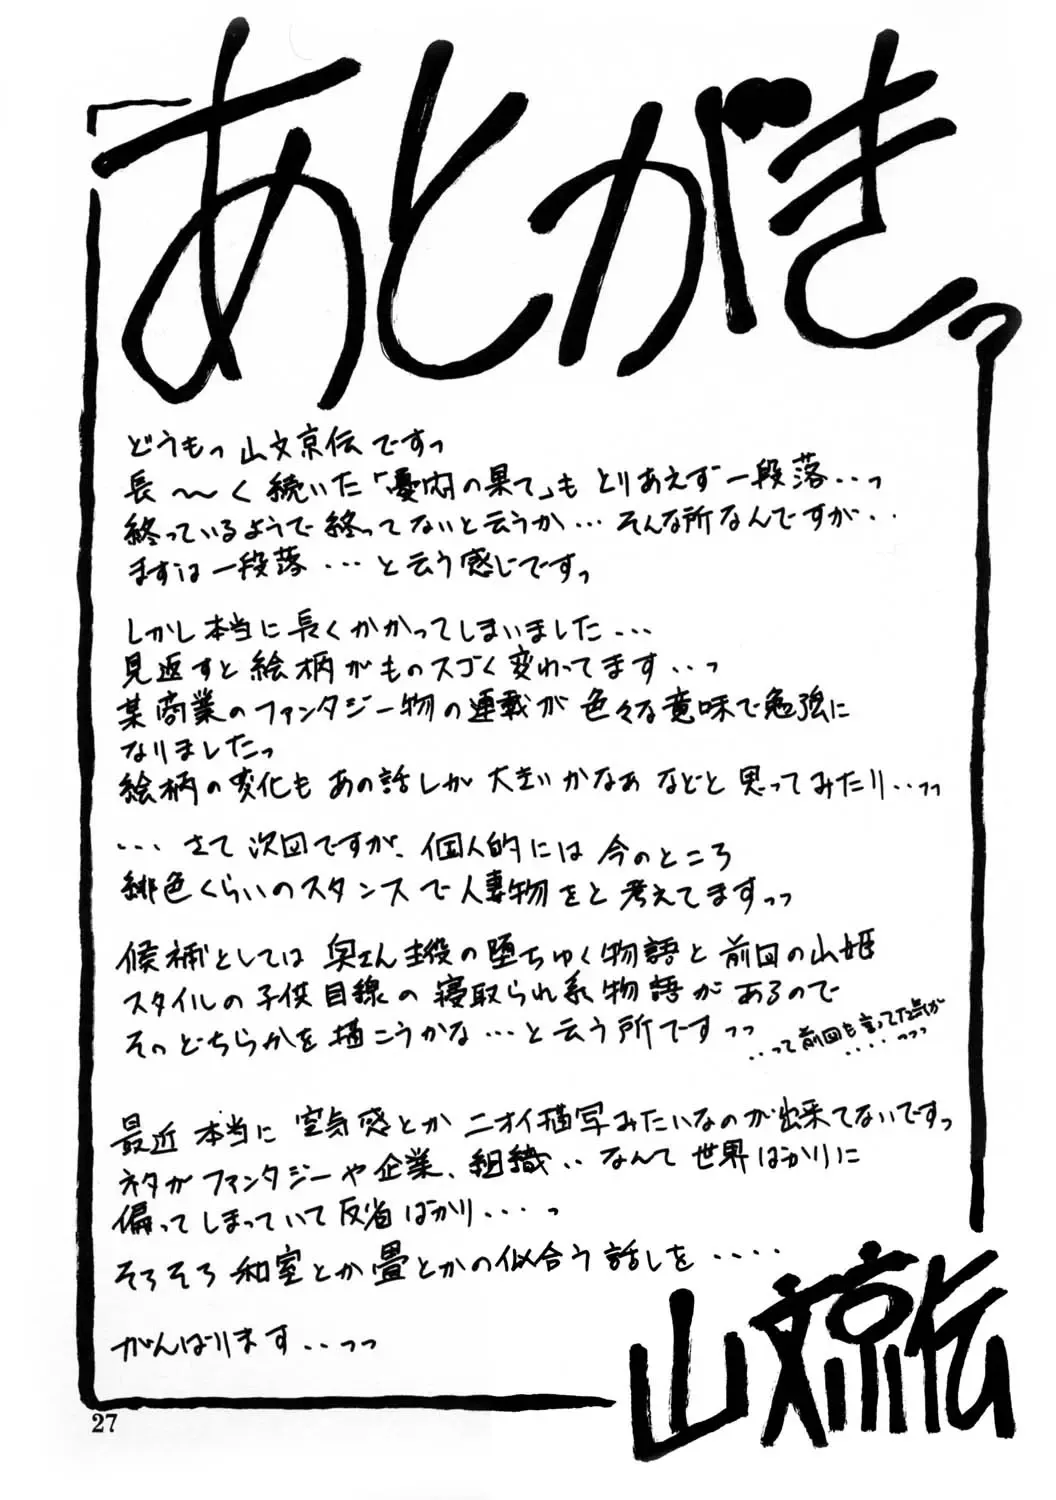 あとがきっ
どうもっ 山文京伝ですっ
長〜〜く続いた「憂肉の果て」も とりあえず一段落‥っ
終っているようで終ってないと云うか… そんな所なんですが‥
まずは一段落…と云う感じですっ
しかし本当に長くかかってしまいました…
見返すと絵柄がものスゴく変わってます‥っ
某商業のファンタジー物の連載が色々な意味で勉強に
なりましたっ
絵柄の変化も あの話しが 大きいかなあ などと思ってみたり‥っっ
…さて次回ですが、個人的には今のところ
緋色くらいのスタンスで人妻物をと考えてますっっ
候補としては 奥さん主役の堕ちゆく物語と 前回の山姫
スタイルの子供目線の寝取られ系物語があるので
そのどちらかを描こうかな…と云う所ですっっ
‥って前回も言ってた気が
‥‥っっっ
最近 本当に 空気感とか ニオイ描写みたいなのが出来てないですっ
ネタがファンタジーや企業、組織‥なんて世界ばかりに
偏ってしまっていて反省ばかり‥‥っ
そろそろ和室とか畳とかの似合う話しを‥‥
がんばります‥っっ
山文京伝
27